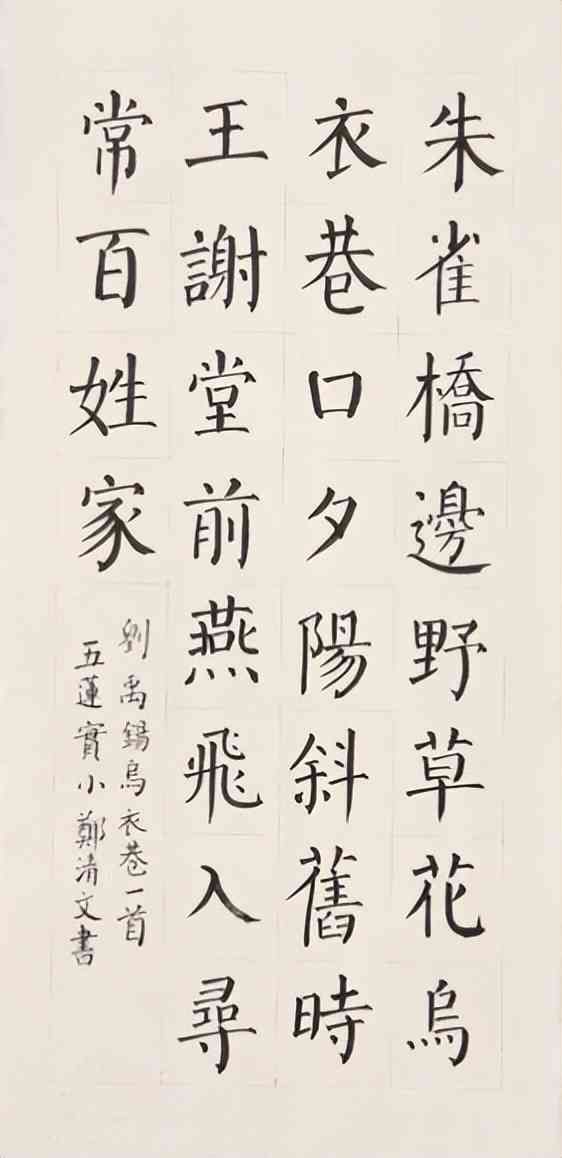 朱雀橋邊野草花烏
衣巷口夕陽斜舊時
王謝堂前燕飛入尋
常百姓家
劉禹錫烏衣巷一首
五蓮實小鄭清文書